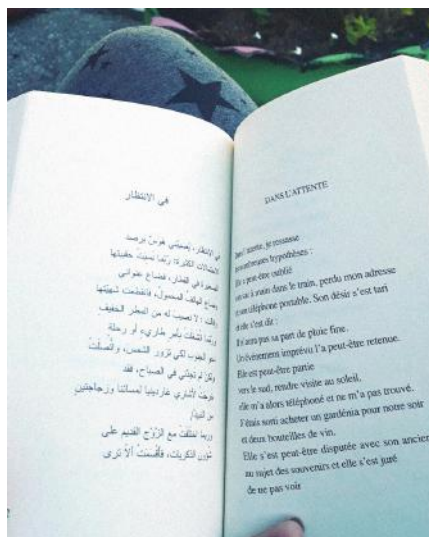 في الانتظار
في الانتظار، يُصيبُني هوسٌ برصد
الاحتمالات الكثيرة: ربّما نسيت حقيبتها
الصغيرة في القطار، فضاع عنواني
وضاع الهاتف المحمول، فانقطعت شهيّتها
وقالت: لا نصيب له من المطر الخفيف
وربّما انشغلت بأمر طارئ، أو رحلة
نحو الجنوب لكي تزور الشمس، واتّصلت
ولكن لم تجدني في الصباح، فقد
خرجت لأشتري غاردينيا لمسائنا وزجاجتين
من النبيذ
وربما اختلفت مع الزّوج القديم على
شؤون الذكريات، فأقسمت ألاّ ترى
DANS L'ATTENTE
Dans l'attente, je ressasse
nombreuses hypothèses :
Elle a peut-être oublié
son sac à main dans le train, perdu mon adresse
et son téléphone portable. Son désir s'est tari
et elle s'est dit :
Il n'aura pas sa part de pluie fine.
Un événement imprévu l'a peut-être retenue.
Elle est peut-être partie
vers le sud, rendre visite au soleil,
elle m'a alors téléphoné et ne m'a pas trouvé.
J'étais sorti acheter un gardénia pour notre soir
et deux bouteilles de vin.
Elle s'est peut-être disputée avec son ancien
au sujet des souvenirs et elle s'est juré
de ne pas voir